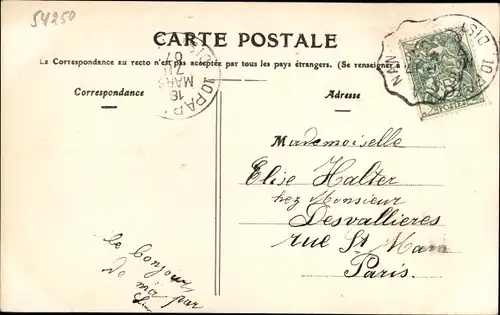 54250
CARTE POSTALE
La Correspondance au recto n'est pas acceptée par tous les pays étrangers. (Se renseigner à
Correspondance
Adresse
18
MARS
07
10
NAN
10
Mademoiselle
Elise Halter
chez Monsieur
Desvallieres
rue St Marc
Paris.
le Bonjour
De ma part